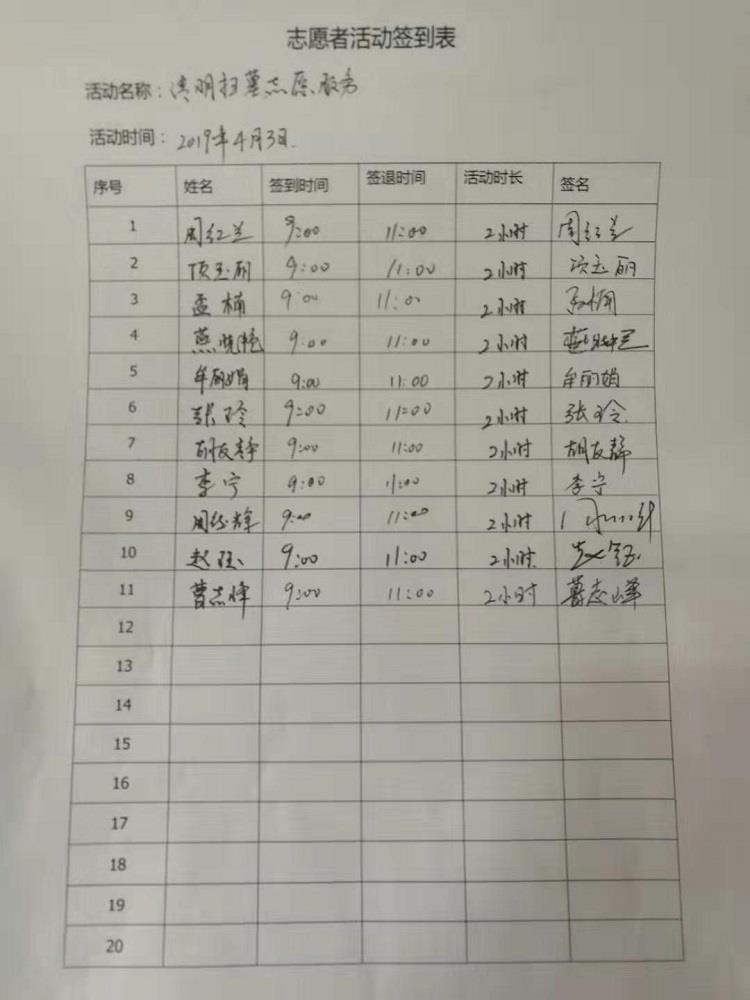 志愿者活动签到表
活动名称：清明扫墓志愿服务
活动时间：2019年4月3日.
序号 姓名 签到时间 签退时间 活动时长 签名
1 周红兰 9:00 11:00 2小时 周红兰
2 项玉丽 9:00 11:00 2小时 项玉丽
3 孟楠 9:00 11:00 2小时 孟楠
4 燕晓艳 9:00 11:00 2小时
5 牟丽娟 9:00 11:00 2小时 牟丽娟
6 张玲 9:00 11:00 2小时 张玲
7 胡友静 9:00 11:00 2小时 胡友静
8 李宁 9:00 11:00 2小时 李宁
9 9:00 11:00 2小时
10 赵 9:00 11:00 2小时 赵
11 曹志峰 9:00 11:00 2小时 曹志峰
12
13
14
15
16
17
18
19
20